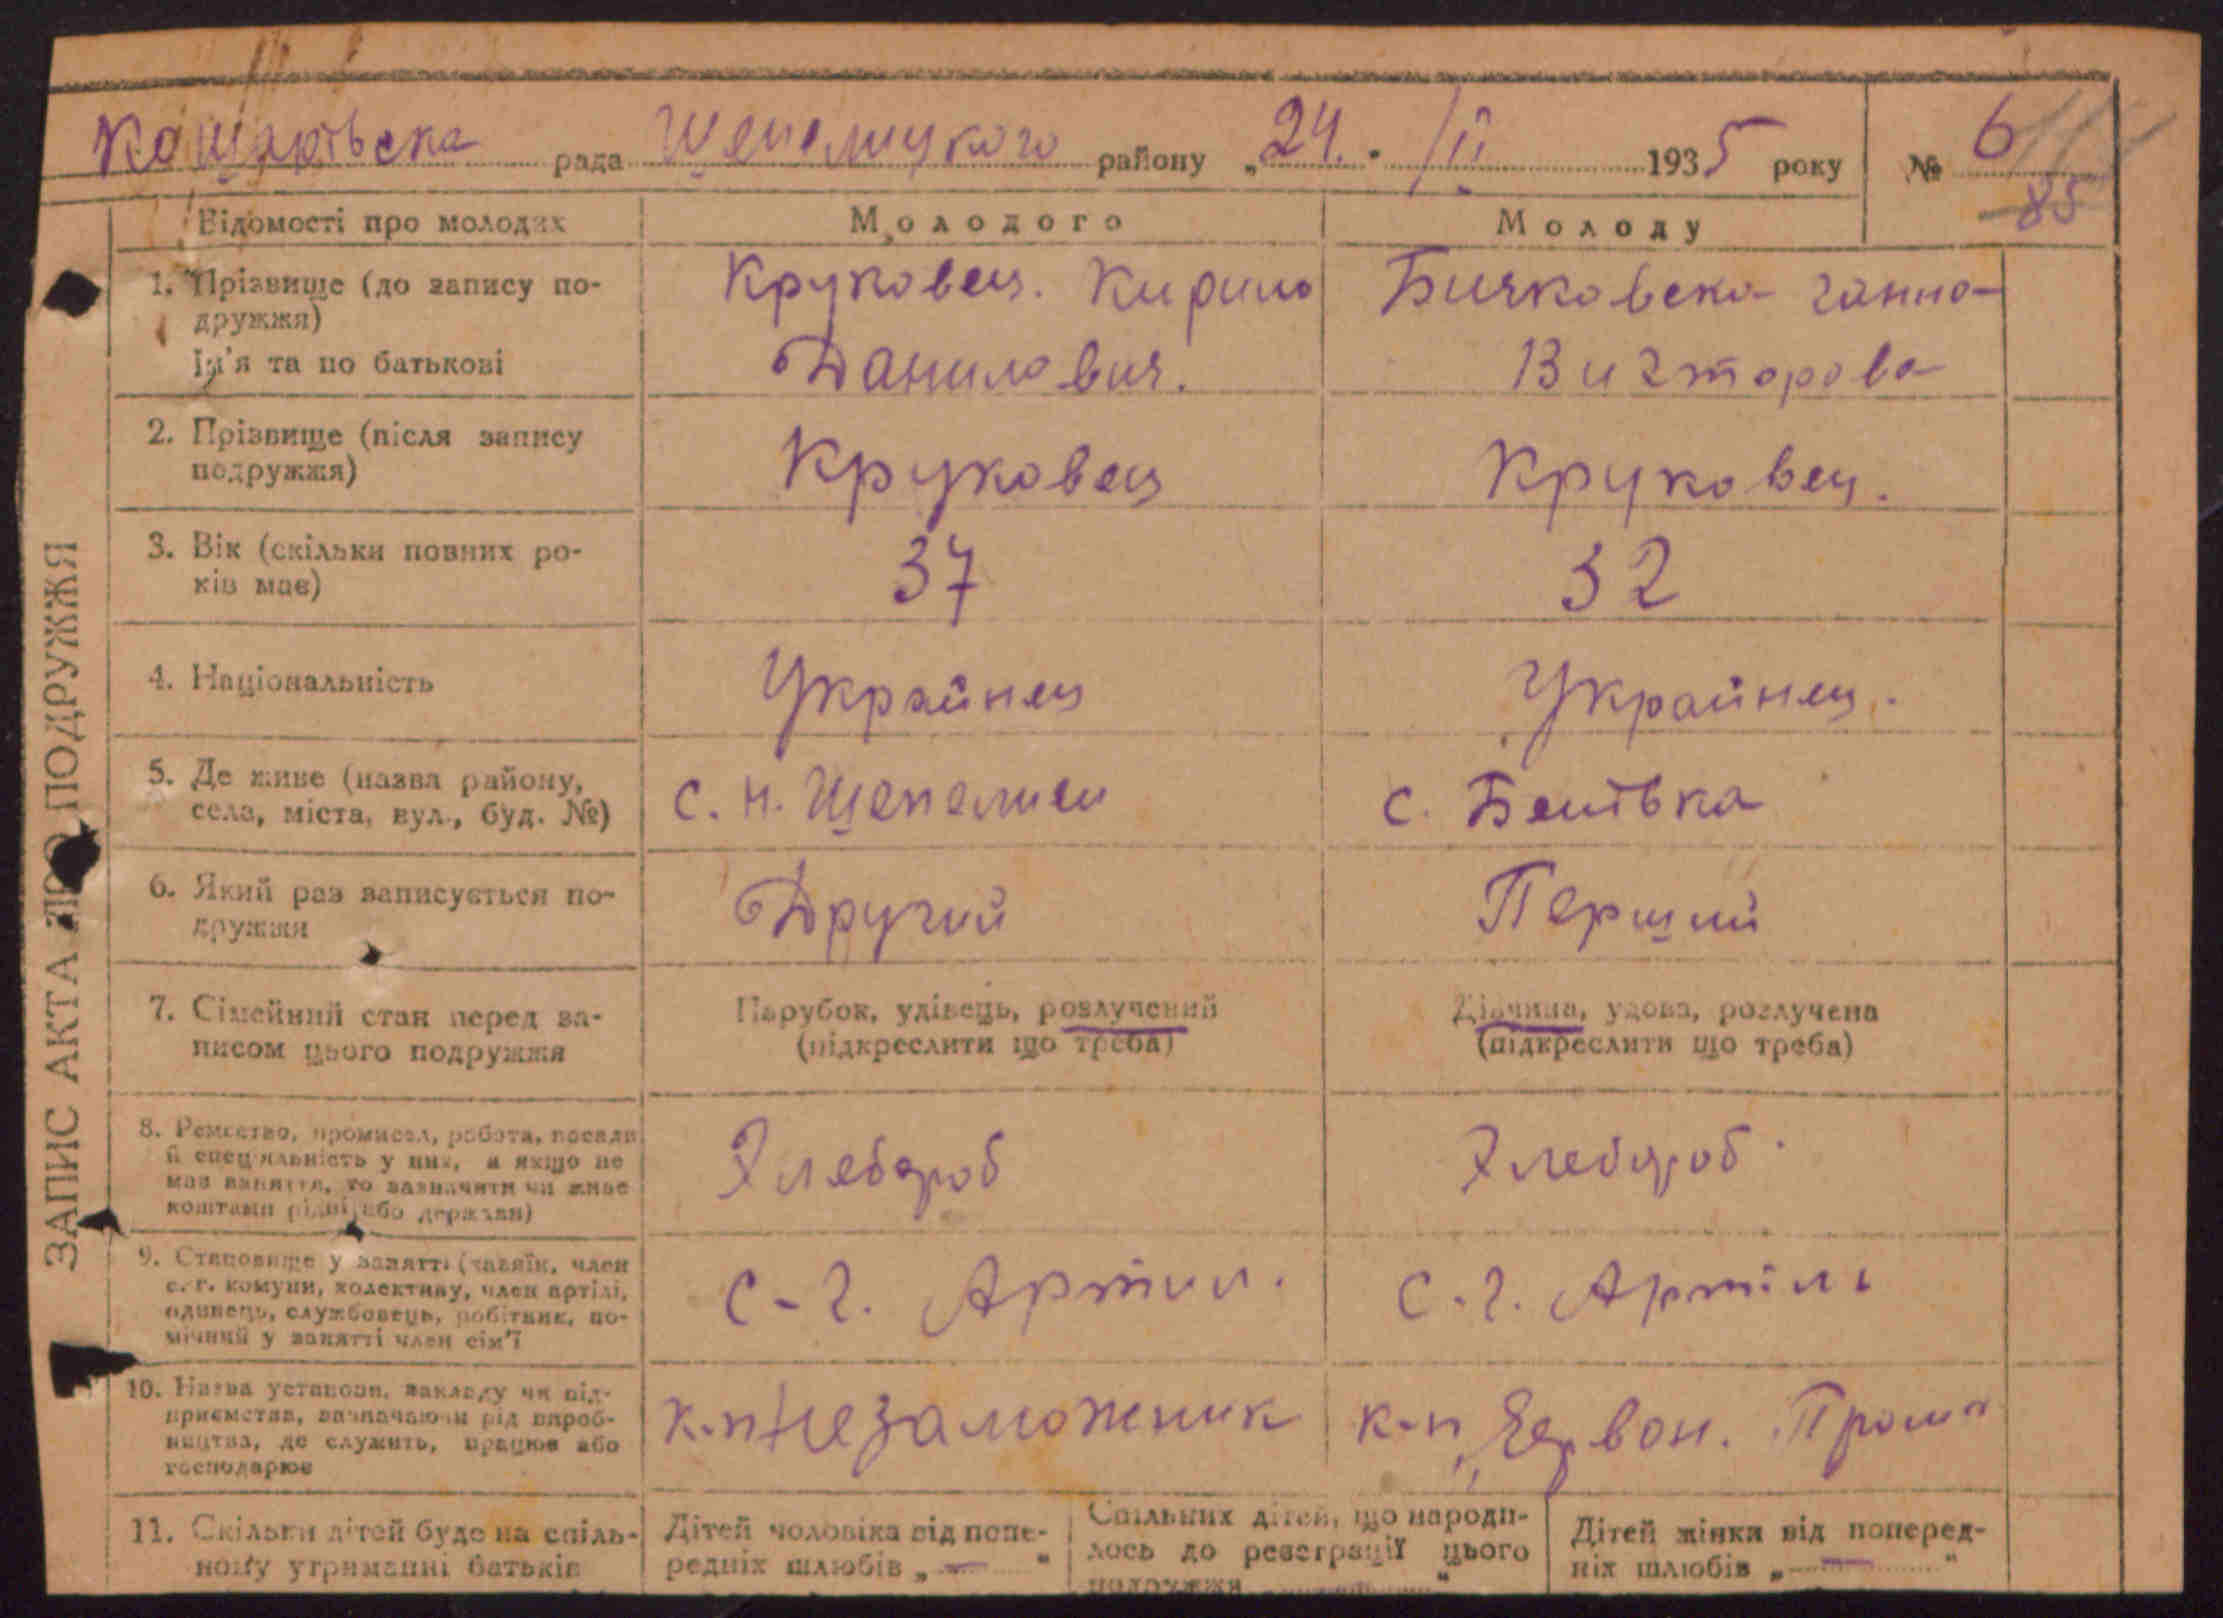 Кошарівска рада Шепелицкого району „24." /II 1935 року № 6
85
Відомості про молодих
Молодого
Молоду
1. Прізвище (до запису подружжя)
Ім'я та по батькові
Круковец. Кирило
Данилович.
Бичковска Ганна
Вигторова
2. Прізвище (після запису
подружжя)
Круковец
Круковец.
3. Вік (скільки повних ро-
ків має)
37
32
4. Національність
Украйнец
Украйнец.
5. Де живе (назва району,
села, міста, вул., буд. №)
с. Н. Шепеличи
с.
6. Який раз записується по-
дружжя
Другий
Перший
7. Сімейний стан перед за-
писом цього подружжя
Парубок, удівець, розлучений
(підкреслити що треба)
Дівчина, удова, розлучена
(підкреслити що треба)
8. Ремество, промисел, робота, посада
й спеціяльність у них, а якщо не
має заняття, то зазначити чи живе
коштами рідні або держави)
Хлебороб
Хлебороб.
9. Становище у занятті (хазяїн, член
с.-г. комуни, колективу, член артілі,
одинець, службовець, робітник, по-
мічний у занятті член сім'ї
с-г. Артил.
с.-г. Артіль
10. Назва установи, закладу чи під-
приємства, зазначаючи рід вироб-
ництва, де служить, працює або
господарює
к-п Незаможник
к-п „Червон. Пром
11. Скільки дітей буде на спіль-
ному утриманні батьків
Дітей чоловіка від попе-
редніх шлюбів „ — "
Спільних дітей, що народи-
лось до реєстрації цього
подружжя "
Дітей жінки від поперед-
ніх шлюбів „ — "
ЗАПИС АКТА ПРО ПОДРУЖЖЯ